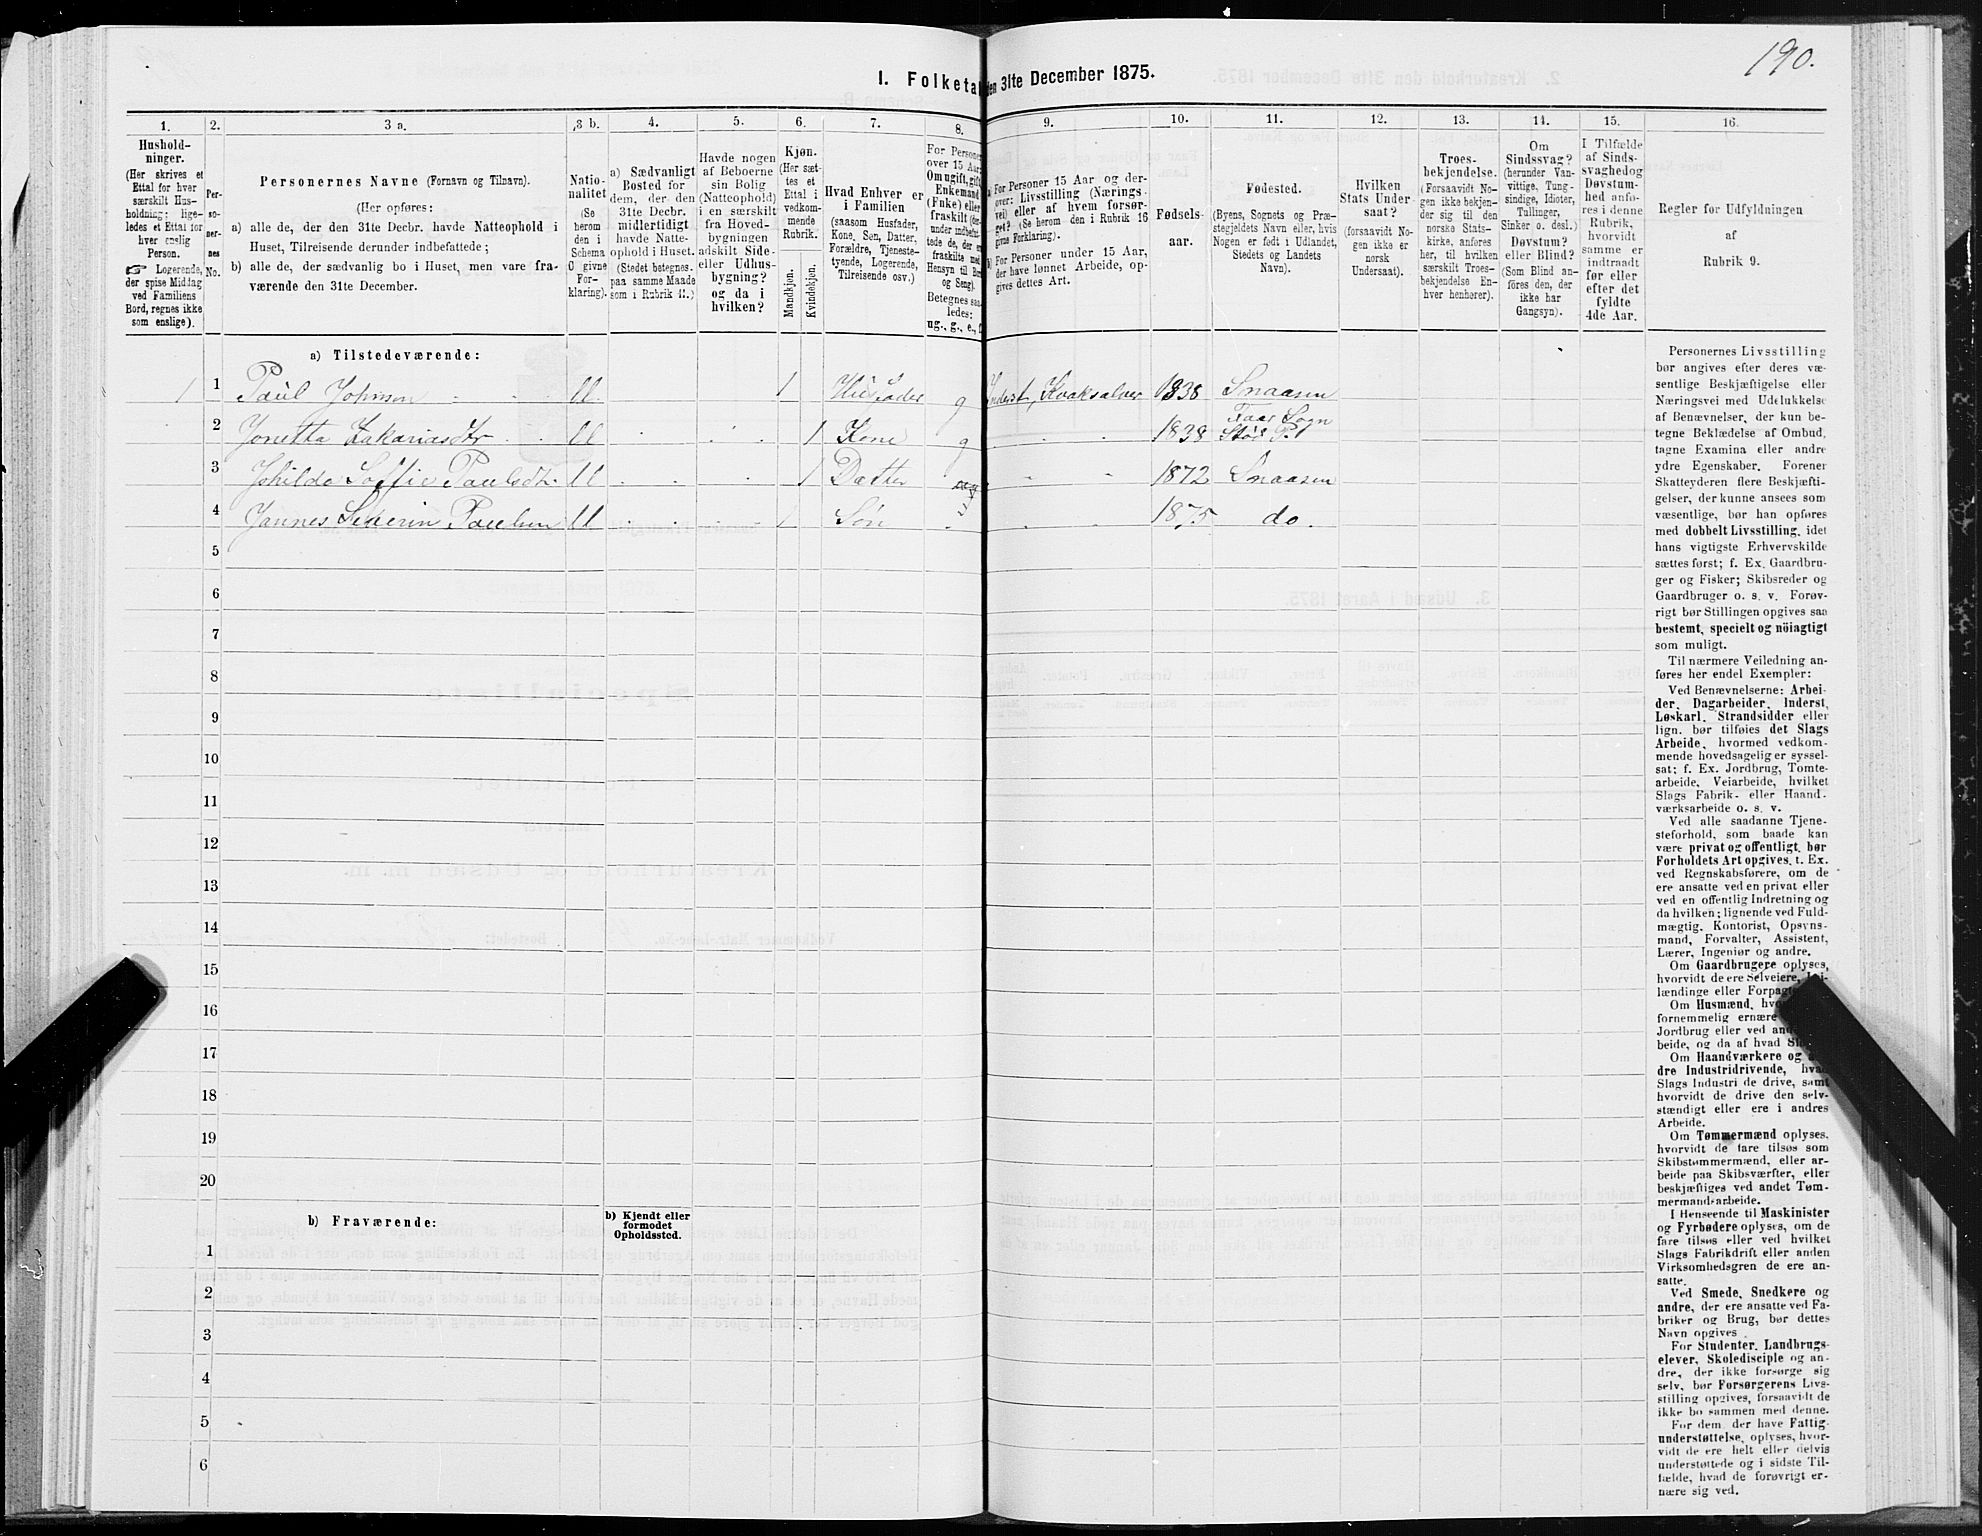 190.
I. Folketal den 31te December 1875.
1.
Hushold-
ninger.
(Her skrives et
Ettal for hver
særskilt Hus-
holdning; lige-
ledes et Ettal for
hver enslig
Person.
☞ Logerende,
der spise Middag
ved Familiens
Bord, regnes ikke
som enslige).
2.
Per-
so-
ner-
nes
No.
3 a.
Personernes Navne (Fornavn og Tilnavn).
(Her opføres:
a) alle de, der den 31te Decbr. havde Natteophold i
Huset, Tilreisende derunder indbefattede;
b) alle de, der sædvanlig bo i Huset, men vare fra-
værende den 31te December.
3 b.
Natio-
nalitet
(Se
herom
den i
Schema
C givne
For-
klaring).
4.
a) Sædvanligt
Bosted for
dem, der den
31te Decbr.
midlertidigt
havde Natte-
ophold i Huset.
(Stedet betegnes
paa samme Maade
som i Rubrik 11.)
5.
Havde nogen
af Beboerne
sin Bolig
(Natteophold)
i en særskilt
fra Hoved-
bygningen
adskilt Side-
eller Udhus-
bygning?
og da i
hvilken?
6.
Kjøn.
(Her sæt-
tes et
Ettal i
vedkom-
mende
Rubrik.
Mandkjøn.
Kvindekjøn.
7.
Hvad Enhver er
i Familien
(saasom Husfader,
Kone, Søn, Datter,
Forældre, Tjeneste-
tyende, Logerende,
Tilreisende osv.)
8.
For Personer
over 15 Aar:
Om ugift, gift,
Enkemand
(Enke) eller
fraskilt (der-
under indbefat-
tede de, der ere
fraskilte med
Hensyn til Bord
og Seng).
Betegnes saa-
ledes:
ug., g., e., f.
9.
a) For Personer 15 Aar og der-
over: Livsstilling (Nærings-
vei) eller af hvem forsør-
get? (Se herom den i Rubrik 16
givne Forklaring).
b) For Personer under 15 Aar,
der have lønnet Arbeide, op-
gives dettes Art.
10.
Fødsels-
aar.
11.
Fødested.
(Byens, Sognets og Præ-
stegjeldets Navn eller, hvis
Nogen er født i Udlandet,
Stedets og Landets
Navn).
12.
Hvilken
Stats Under-
saat?
(forsaavidt No-
gen ikke er
norsk
Undersaat).
13.
Troes-
bekjendelse.
(Forsaavidt No-
gen ikke bekjen-
der sig til den
norske Stats-
kirke, anføres
her, til hvilken
særskilt Troes-
bekjendelse En-
hver henhører).
14.
Om
Sindssvag?
(herunder Van-
vittige, Tung-
sindige, Idioter,
Tullinger,
Sinker o. desl.)
Døvstum?
eller Blind?
(Som Blind an-
føres den, der
ikke har
Gangsyn).
15.
I Tilfælde
af Sinds-
svaghed og
Døvstum-
hed anfø-
res i denne
Rubrik,
hvorvidt
samme er
indtraadt
før eller
efter det
fyldte
4de Aar.
16.
Regler for Udfyldningen
af
Rubrik 9.
a) Tilstedeværende:
1 1 Paul Johnson ll. 1 Husfader g Inderst, Kvaksalver 1838 Snaasen
2 Jonetta Zakariasdtr ll 1 Kone g 1838 Faar Sogn Stod P.
3 Johilda Soffie Paulsdtr. ll 1 Datter 1872 Snaasen
4 Jannes Severin Paulsen ll 1 Søn 1875 do.
5
6
7
8
9
10
11
12
13
14
15
16
17
18
19
20
b) Fraværende:
b) Kjendt eller
formodet
Opholdssted.
1
2
3
4
5
6
Personernes Livsstilling
bør angives efter deres væ-
sentlige Beskjæftigelse eller
Næringsvei med Udelukkelse
af Benævnelser, der kun be-
tegne Beklædelse af Ombud,
tagne Examina eller andre
ydre Egenskaber. Forener
Skatteyderen flere Beskjæfti-
gelser, der kunne ansees som
væsentlige, bør han opføres
med dobbelt Livsstilling, idet
hans vigtigste Erhvervskilde
sættes først; f. Ex. Gaardbru-
ger og Fisker; Skibsreder og
Gaardbruger o. s. v. Forøv-
rigt bør Stillingen opgives saa
bestemt, specielt og nöiagtigt
som muligt.
Til nærmere Veiledning an-
føres her endel Exempler:
Ved Benævnelserne: Arbei-
der, Dagarbeider, Inderst,
Løskarl, Strandsidder eller
lign. bør tilføies det Slags
Arbeide, hvormed vedkom-
mende hovedsagelig er syssel-
sat; f. Ex. Jordbrug, Tomte-
arbeide, Veiarbeide, hvilket
Slags Fabrik- eller Haand-
værksarbeide o. s. v.
Ved alle saadanne Tjene-
steforhold, som baade kan
være privat og offentligt, bør
Forholdets Art opgives, t. Ex.
ved Regnskabsførere, om de
ere ansatte ved en privat eller
ved en offentlig Indretning og
da hvilken; lignende ved Fuld-
mægtig, Kontorist, Opsyns-
mand, Forvalter, Assistent,
Lærer, Ingeniør og andre.
Om Gaardbrugere oplyses,
hvorvidt de ere Selveiere, Lei-
lændinge eller
Om Husmænd,
fornemmelig ernære
Jordbrug eller ved
beide, og da af hvad
Om Haandværkere og an-
dre Industridrivende, hvad
Slags Industri de drive, samt
hvorvidt de drive den selv-
stændigt eller ere i andres
Arbeide.
Om Tømmermænd oplyses,
hvorvidt de fare tilsøs som
Skibstømmermænd, eller ar-
beide paa Skibsværfter, eller
beskjæftiges ved andet Tøm-
mermandsarbeide.
I Henseende til Maskinister
og Fyrbødere oplyses, om de
fare tilsøs eller ved hvilket
Slags Fabrikdrift eller anden
Virksomhedsgren de ere an-
satte.
Ved Smede, Snedkere og
andre, der ere ansatte ved Fa-
briker og Brug, bør dettes
Navn opgives.
For Studenter, Landbrugs-
elever, Skoledisciple og an-
dre, der ikke forsørge sig
selv, bør Forsørgerens Livs-
stilling opgives, forsaavidt de
ikke bo sammen med denne.
For dem, der have Fattig-
understøttelse, oplyses, hvor-
vidt de ere helt eller delvis
understøttede og i sidste Til-
fælde, hvad de forøvrigt er-
nære sig ved.